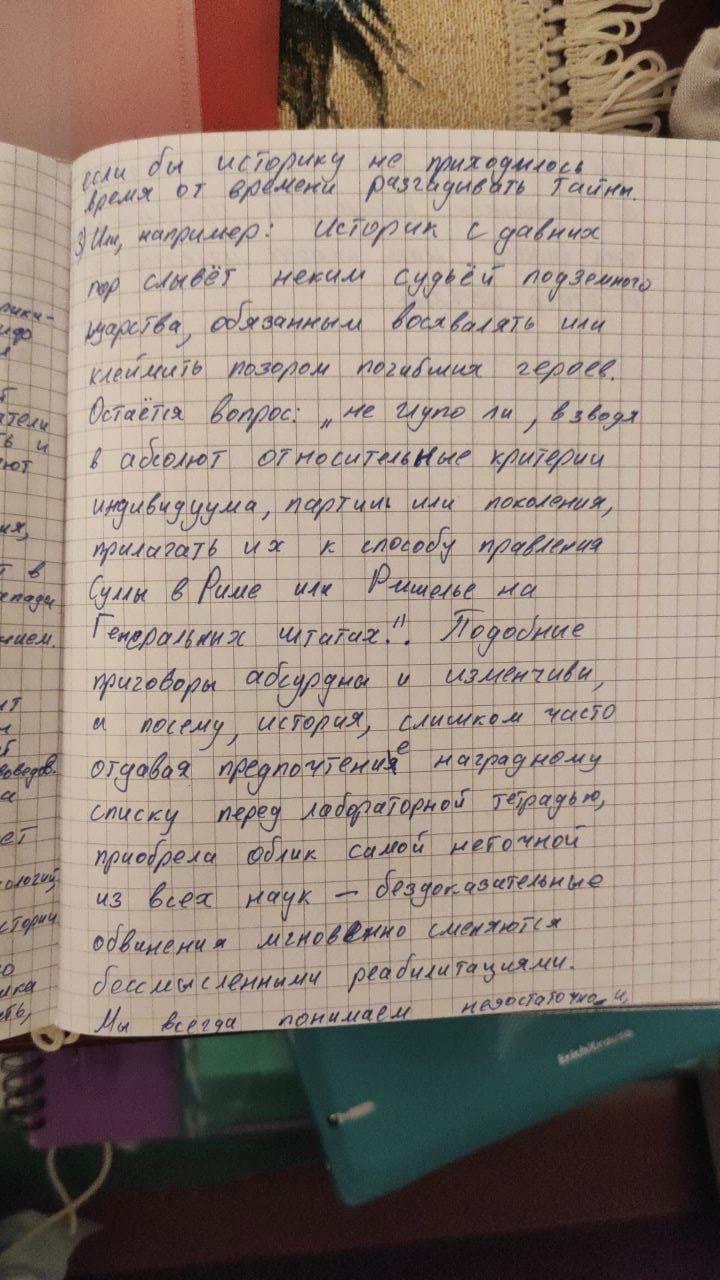 если бы историку не приходилось
время от времени разгадывать тайны.
3) Или, например: историк с давних
пор слывёт неким судьёй подземного
царства, обязанным восхвалять или
клеймить позором погибших героев.
Остаётся вопрос: „не глупо ли, взводя
в абсолют относительные критерии
индивидуума, партии или поколения,
прилагать их к способу правления
Суллы в Риме или Ришелье на
Генеральных штатах!". Подобные
приговоры абсурдны и изменчивы,
а посему, история, слишком часто
отдавая предпочтение наградному
списку перед лабораторной тетрадью,
приобрела облик самой неточной
из всех наук — бездоказательные
обвинения мгновенно сменяются
бессмысленными реабилитациями.
Мы всегда понимаем недостаточно и
ErichKrause